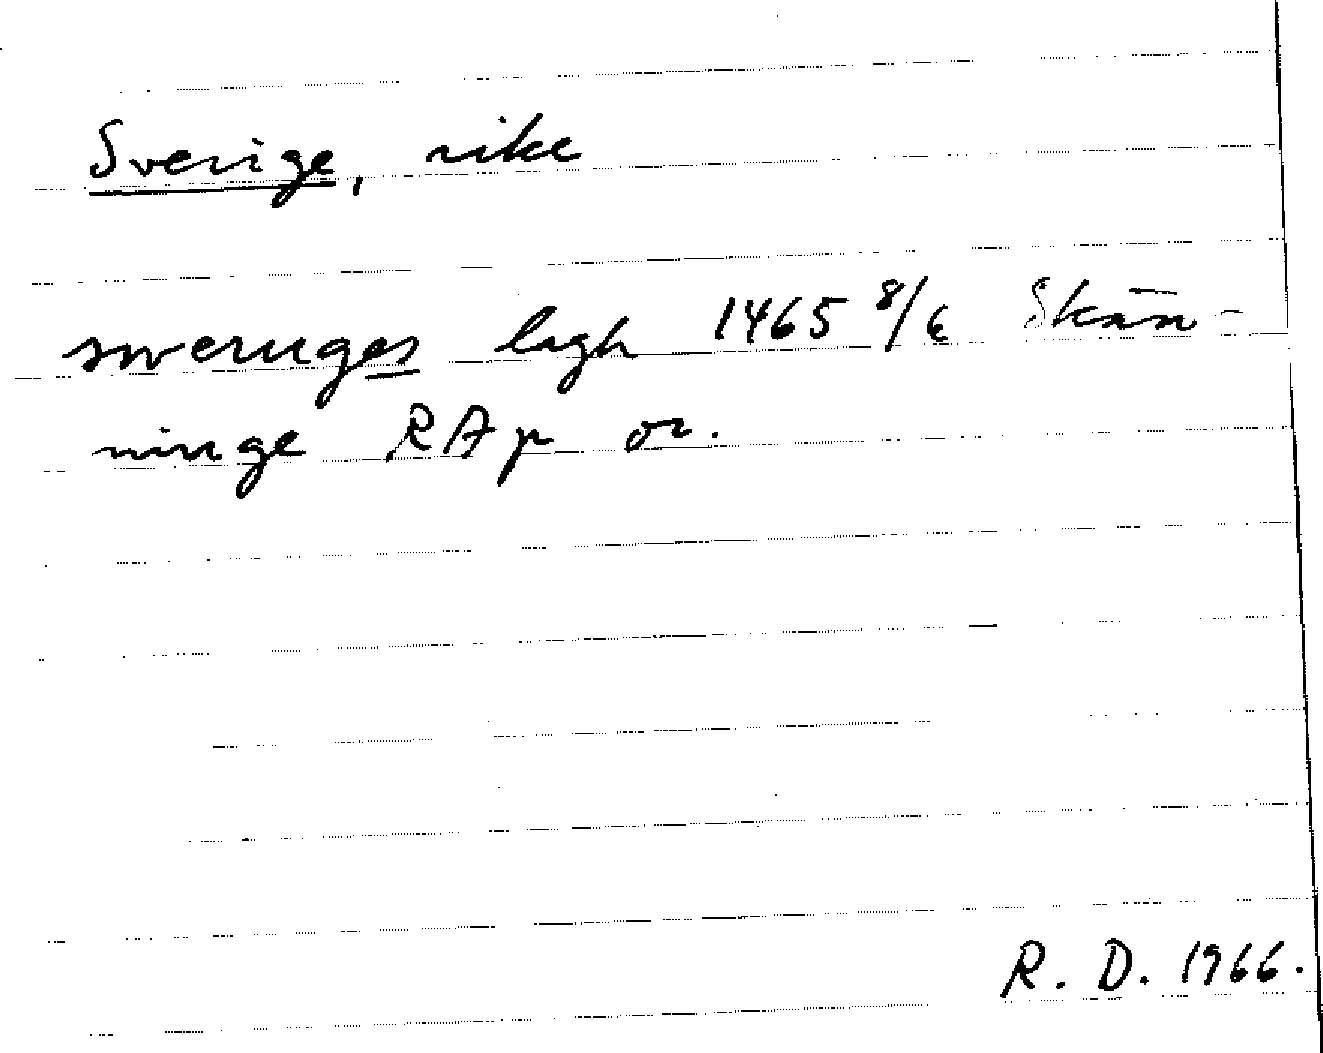 Sverige, rike
sweriges lagh 1465 8/6 Skän-
ninge RAp or.
R. D. 1966.